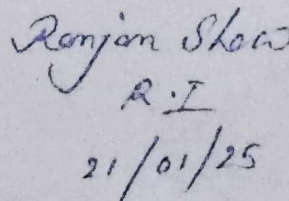 Ranjan Shaw
R.I
21/01/25